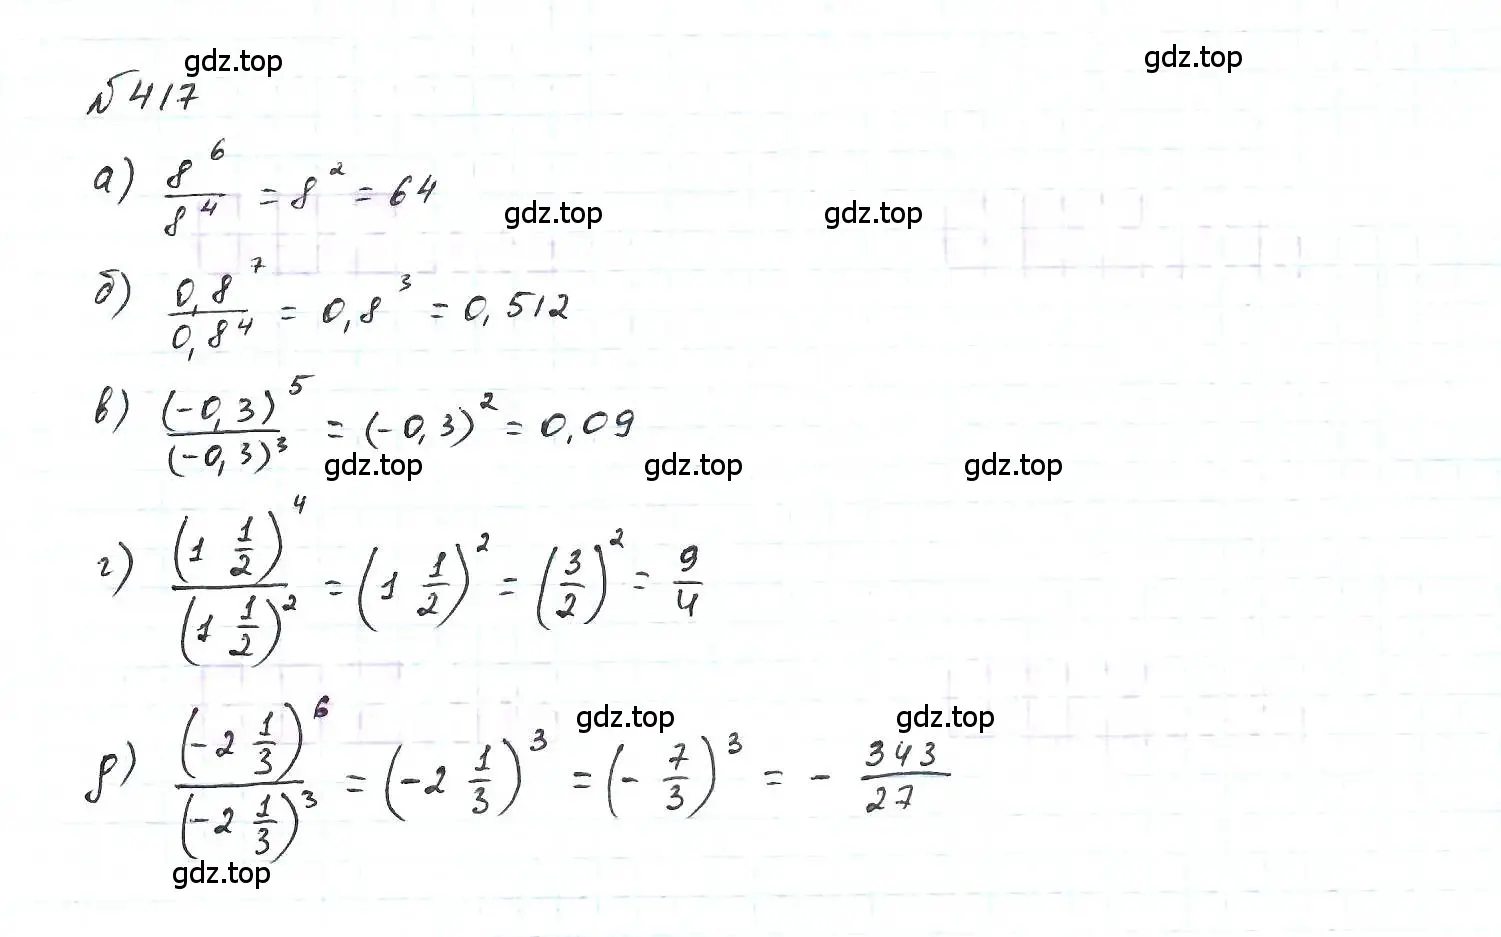 gdz.top gdz.top
№417
а) 8^6/8^4 = 8^2 = 64
gdz.top gdz.top
б) 0,8^7/0,8^4 = 0,8^3 = 0,512
в) (-0,3)^5/(-0,3)^3 = (-0,3)^2 = 0,09
gdz.top gdz.top gdz.top
г) (1 1/2)^4/(1 1/2)^2 = (1 1/2)^2 = (3/2)^2 = 9/4
gdz.top gdz.top
д) (-2 1/3)^6/(-2 1/3)^3 = (-2 1/3)^3 = (-7/3)^3 = -343/27
gdz.top